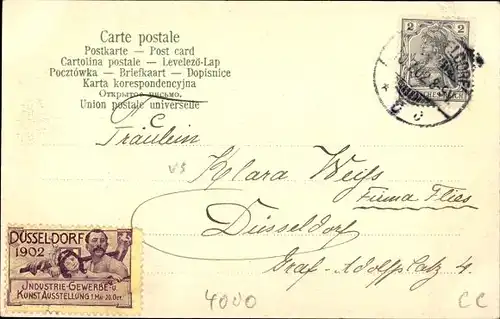 Carte postale
Postkarte — Post card
Cartolina postale — Levelező-Lap
Pocztówka — Briefkaart — Dopisnice
Karta korespondencyjna
Открытое письмо.
Union postale universelle
2 2
Fräulein
Klara Weiß
Firma Flies
Düsseldorf
Graf-Adolfplatz 4.
DÜSSELDORF
1902
INDUSTRIE-GEWERBE- U.
KUNST AUSSTELLUNG 1. Mai-20. Oct.
4000
CC